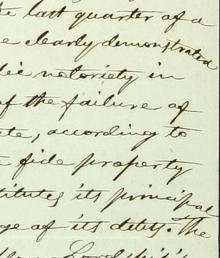 last quarter of a
clearly demonstrated
notoriety in
of the failure of
according to
fide property
its principal
of its debts. The